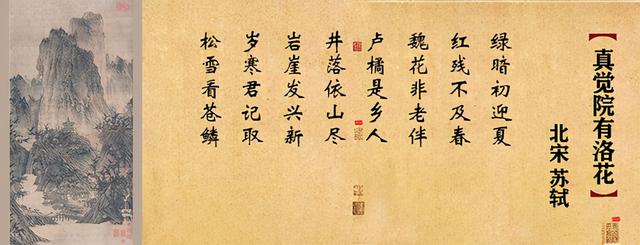 【真觉院有洛花】
北宋 苏轼
绿暗初迎夏
红残不及春
魏花非老伴
卢橘是乡人
井落依山尽
岩崖发兴新
岁寒君记取
松雪看苍鳞